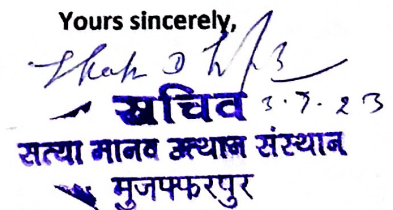 Yours sincerely,
सचिव 3.7.23
सत्या मानव उत्थान संस्थान
मुजफ्फरपुर